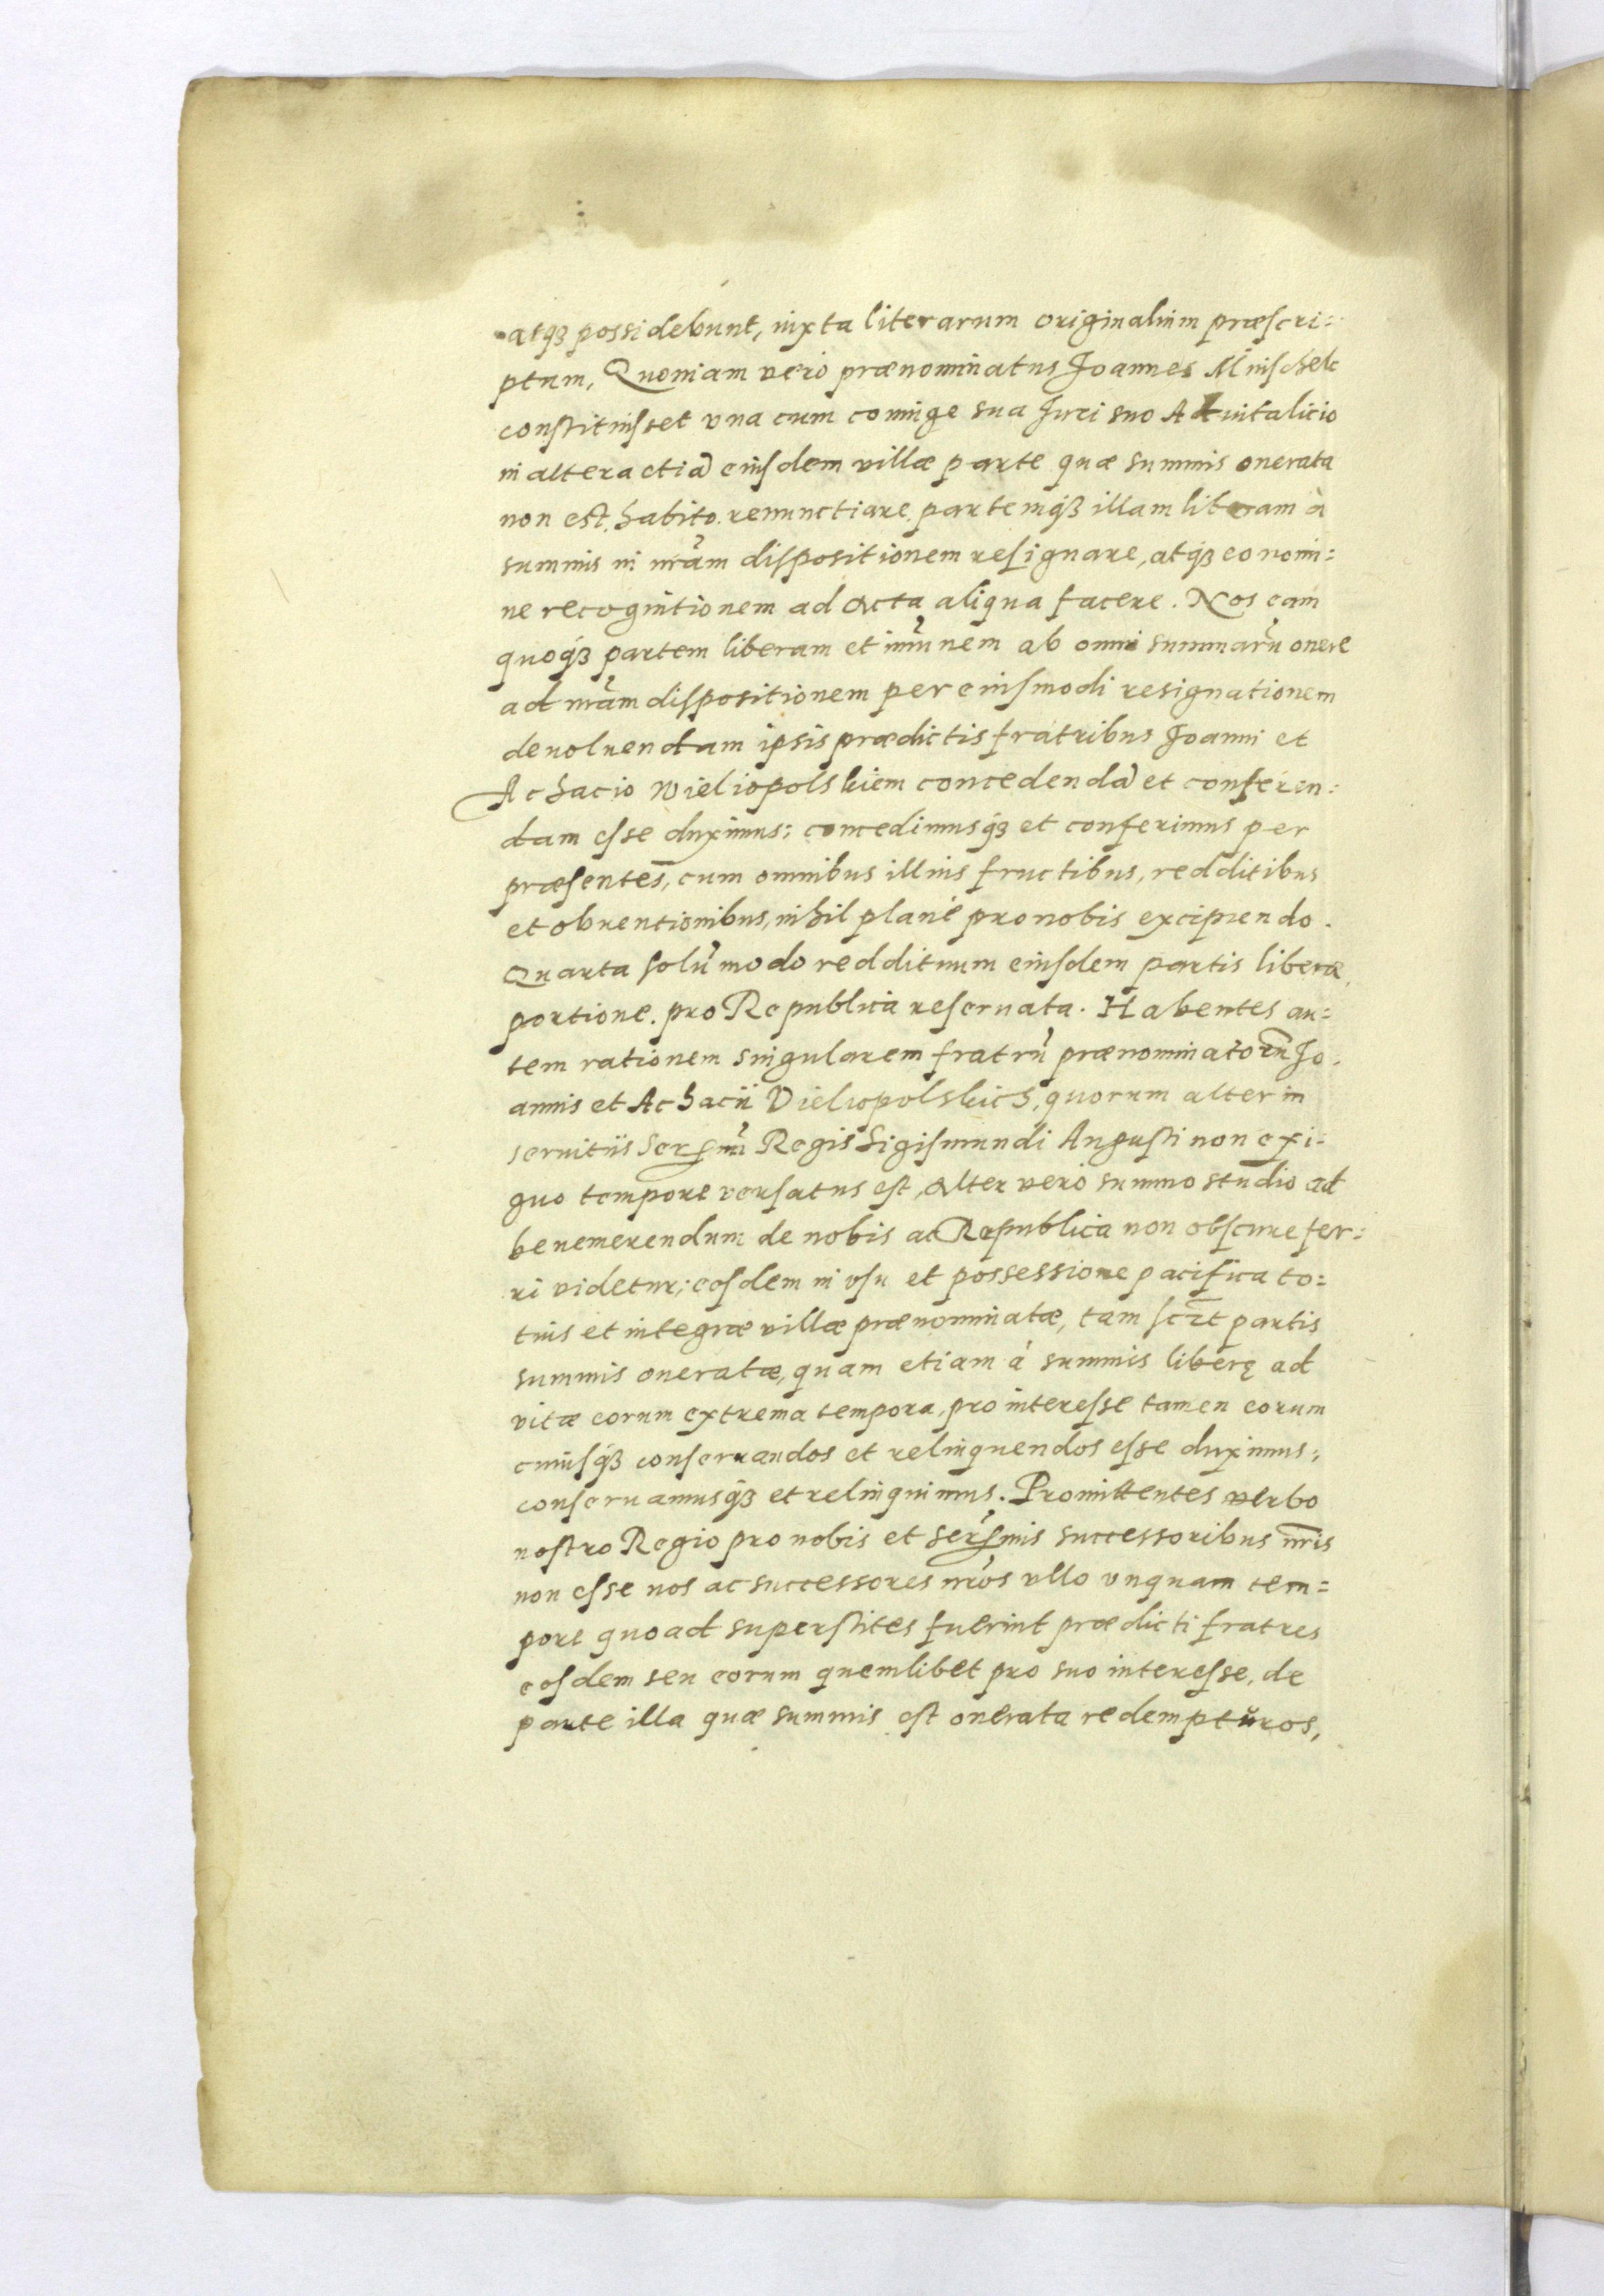 atq3 possidebunt, iuxta literarum originalium præscri=
ptum, Quoniam verò prænominatus Joannes Muischek
constituisset vna cum coniuge sua Juri suo Aduitalicio
in altera etiã eiusdem villæ parte quæ summis onerata
non est, habito. renunctiare, partemq́3 illam liberam à
summis in nr̃am dispositionem resignare, atq́3 eo nomi=
ne recognitionem ad Acta aliqua facere. Nos eam
quoq́3 partem liberam et im̃unem ab omni summarũ onere
ad nr̃am dispositionem per eiusmodi resignationem
deuoluendam ipsis prædictis fratribus Joanni et
Achacio Wieliopolskiem concedendã et conferen:
dam esse duximus: concedimusq́3 et conferimus per
præsentes, cum omnibus illius fructibus, redditibus
et obuentionibus, nihil planè pro nobis excipiendo.
Quarta solũmodo reddituum eiusdem partis liberæ,
portione. pro Republica reseruata. Habentes au=
tem rationem singularem fratrũ prænominatorũ Jo.
annis et Achacii Vieliopolskich, quorum alter in
seruitiis Serm̃i Regis Sigismundi Augusti non exi=
guo tempore versatus est, Alter verò summo studio ad
benemerendum de nobis ac Republica non obscure fer=
ri videtur; eosdem in vsu et possessione pacifica to=
tius et integræ villæ prænominatæ, tam scil̃t partis
summis oneratæ, quam etiam à summis liberę ad
vitæ eorum extrema tempora, pro interesse tamen eorum
cuiusq́3 conseruandos et relinquendos esse duximus;
conseruamusq́3 et relinquimus. Promittentes verbo
nostro Regio pro nobis et Serm̃is successoribus nr̃is
non esse nos ac successores nr̃os vllo vnquam tem=
pore quoad superstites fuerint prædicti fratres
eosdem seu eorum quemlibet pro suo interesse, de
parte illa quæ summis est onerata redempturos,